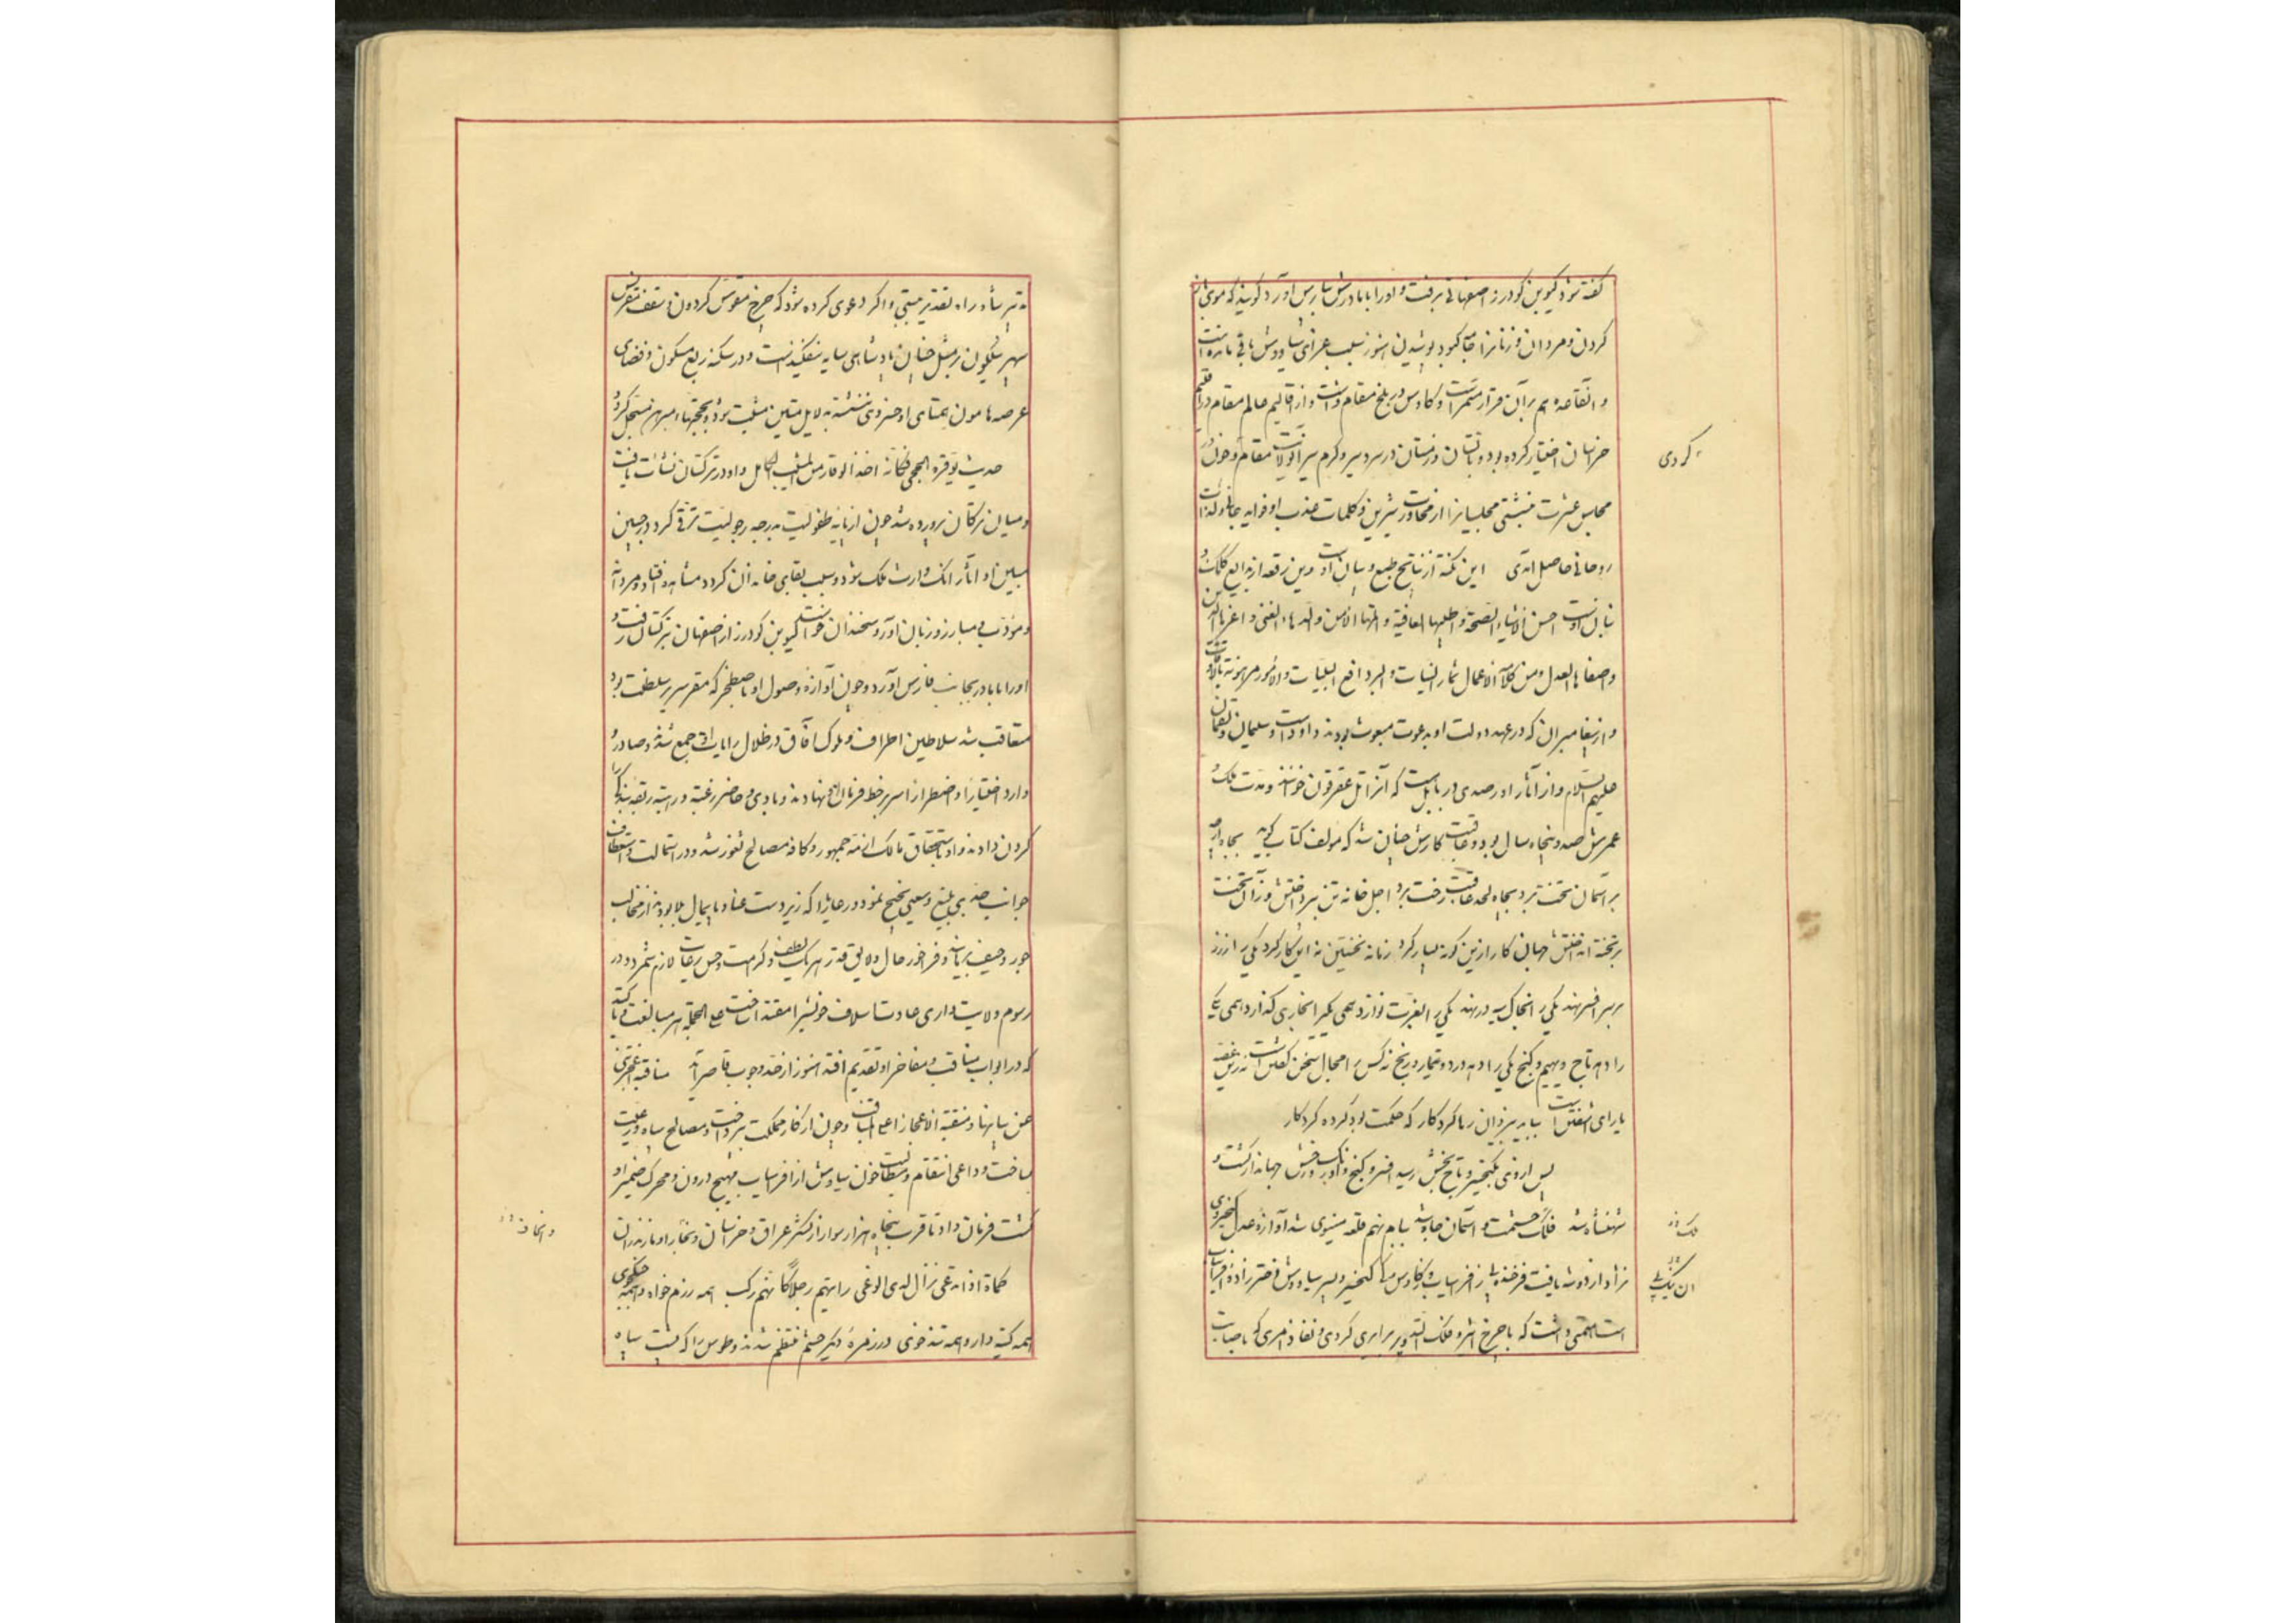 گفته شود کیوبن کودرز اصفهانی برفت و اورا با مادرش بپارس آورد کویند که موی
کردن و مردان و زنانرا جامه کبود پوشیدن هنوز بسبب عزای سیاووش باقی مانده است
و آنقاعده هم بر آن قرار مستمر است و کاوس در بلخ مقام داشت و از اقالیم عالم مقام در اقلیم
خراسان اختیار کرده بود و تابستان و زمستان در سردسیر و کرم سیر آنولایت مقام و چون در
کردی
مجلس عشرت منبشتی مجلسیانرا از محاورت شیرین و کلمات عذب او فواید
روحانی حاصل آمدی این نکته از نتایج طبع و بیان اوست وین رقعه از بدایع کلک و
بنان اوست احسن الاشیاء الصحة و اطیبها العافیة و الامن و الغنی و
و اصفاها العدل و من کلامه الاعمال ثمار النیات و البر دافع البلیات و الامور مرهونة
و از پیغامبران که در عهد دولت او بدعوت مبعوث بودند داود است و سلیمان و لقمان
علیهم السلام و از آثار او رصدی در بابل است که آنرا تل عقرقوف خوانند و مدت ملک و
عمرش صد و پنجاه سال بود و عاقبت کارش چنان شد که مؤلف کتاب کوید بجاه ار چه
بر آسمان تخت برد بجاه لحد عاقبت رخت برد اجل خانه تن بپرداختش ز آن تخت
بر تخته انداختش جهان کار ازین کونه بسیار کرد زمانه نخستین نه این کار کرد یکی را ز زر
بر سر افسر نهد یکی را بخاک سیه در نهد یکی را بعزت نوازد همی یکی را بخاری کذارد همی یکی
را دهد تاج و دیهیم و کنج یکی را دهد درد و تیمار و رنج نه کس را مجال سخن کفتن است نه زین غصه
یارای آشفتن است بباید بیزدان رها کرد کار که حکمت بود کرده کردکار
پس از وی بکیخسرو تاج بخش رسید افسر و کنج و اورنک و رخش جهاندار کشت و
شهنشاه شد فلک حشمت و آسمان جاه شد ببام نهم قلعه مینوی شد آوازه عدل کیخسروی
نژاد از دو شه یافت فرخنده پی ز افراسیاب و ز کاوس کی کیخسرو پسر سیاووش دختر زاده افراسیاب
است همتی داشت که با چرخ اثیر و فلک التدویر برابری کردی و نفاذ امری که با صبات
تدبیر شاه راه تقدیر ببستی و اکر دعوی کرده شود که چرخ مقوس کردون و سقف مقرنس
سپهر نیلکون بر مثل چنان پادشاهی سایه نیفکنده است و در سکنه ربع مسکون و فضای
عرصه هامون همتای او خسروی ننشسته بدلایل متین مثبت بود و بحجتهاء مبرهن مسجل کردد
حدیث یوقره الحجی فکانه اخذ الوقار من المشیب الکامل و او در ترکستان نشأت یافت
و میان ترکان پرورده شد چون از پایه طفولیت بدرجه رجولیت ترقی کرد و در جبین
مبین او آثار آنک وارث ملک شود و سبب بقای خاندان کردد مشاهده افتاد و مردانه
و مؤدب و مبارز و زبان آور و سخندان خواست کیوبن کودرز از اصفهان بترکستان رفت و
اورا با مادر بجانب فارس آورد و چون آوازه وصول او باصطخر که مقر سریر سلطنت بود
متعاقب شد سلاطین اطراف و ملوک آفاق در ظلال رایات او جمع شدند و صادر و
وارد اختیارا و اضطرارا سر بر خط فرمان او نهادند و بادی و حاضر رغبة و رهبة ربقه بندکی را
کردن دادند و او باستحقاق مالک ازمه جمهور و کافه مصالح ثغور شد و در استمالت و استعطاف
جوانب جدی بلیغ و سعیی نجیح نمود و رعایارا که زیر دست عنا و پایمال بلا بودند از مخالب
جور و حیف برهانید و فراخور حال و لایق قدر هر یک لطف و کرمت و حسن رعایت لازم شمرد و در
رسوم ولایت داری عادت اسلاف خویشرا مقتدا ساخت علی الجمله هر مبالغت و تأکید
که در ابواب مناقب و مفاخر او تقدیم افتد هنوز از حد وجوب قاصر آید مناقبه
عن و منقبة الاعجاز اعیا و چون از کار مملکت بپرداخت و مصالح سپاه و رعیت
بساخت و داعی انتقام و مطالبت خون سیاوش از افراسیاب مهیج درون و محرک ضمیر او
کشت فرمان داد تا قرب پنجاه هزار سوار از لشکر عراق و خراسان و بخارا و مازندران
کماة اذا تدعی نزال لدی الوغی رایتهم رجلا کانهم رکب همه رزم خواه و همه جنکجوی
همه کینه دار و همه تند خوی در زمره دیکر حشم منتظم شدند و طوس را که سپاه